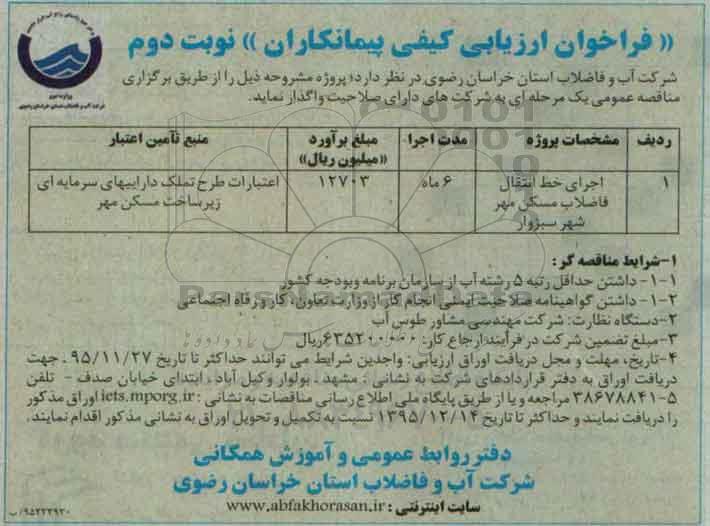 « فراخوان ارزیابی کیفی پیمانکاران » نوبت دوم
شرکت آب و فاضلاب استان خراسان رضوی در نظر دارد؛ پروژه مشروحه ذیل را از طریق برگزاری
مناقصه عمومی یک مرحله ای به شرکت های دارای صلاحیت واگذار نماید.
وزارت نیرو
شرکت آب و فاضلاب استان خراسان رضوی
ردیف مشخصات پروژه مدت اجرا مبلغ برآورد «میلیون ریال» منبع تأمین اعتبار
۱ اجرای خط انتقال ۶ ماه ۱۲۷۰۳ اعتبارات طرح تملک داراییهای سرمایه ای
فاضلاب مسکن مهر زیرساخت مسکن مهر
شهر سبزوار
۱-شرایط مناقصه گر:
۱-۱- داشتن حداقل رتبه ۵ رشته آب از سازمان برنامه وبودجه کشور
۱-۲- داشتن گواهینامه صلاحیت ایمنی انجام کار از وزارت تعاون، کار و رفاه اجتماعی
۲-دستگاه نظارت: شرکت مهندسی مشاور طوس آب
۳-مبلغ تضمین شرکت در فرآیند ارجاع کار: ۶۳۵۲۰۰۰۰۰ریال
۴-تاریخ، مهلت و محل دریافت اوراق ارزیابی: واجدین شرایط می توانند حداکثر تا تاریخ ۹۵/۱۱/۲۷ ـ جهت
دریافت اوراق به دفتر قراردادهای شرکت به نشانی : مشهد ـ بولوار وکیل آباد ، ابتدای خیابان صدف - تلفن
۵-۳۸۶۷۸۸۴۱ مراجعه و یا از طریق پایگاه ملی اطلاع رسانی مناقصات به نشانی : iets.mporg.ir اوراق مذکور
را دریافت نمایند و حداکثر تا تاریخ ۱۳۹۵/۱۲/۱۴ نسبت به تکمیل و تحویل اوراق به نشانی مذکور اقدام نمایند.
دفتر روابط عمومی و آموزش همگانی
شرکت آب و فاضلاب استان خراسان رضوی
سایت اینترنتی : www.abfakhorasan.ir
۹۵۲۲۲۹۲۰/ب